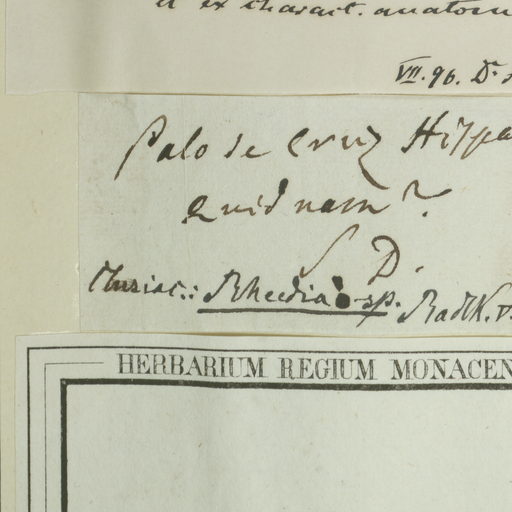 a ex charact. anatom
VII. 96. Dr.
Palo de Cruz Hispa
Quid nam?
S. D.
Rheedia sp. Radlk.
HERBARIUM REGIUM MONACEN